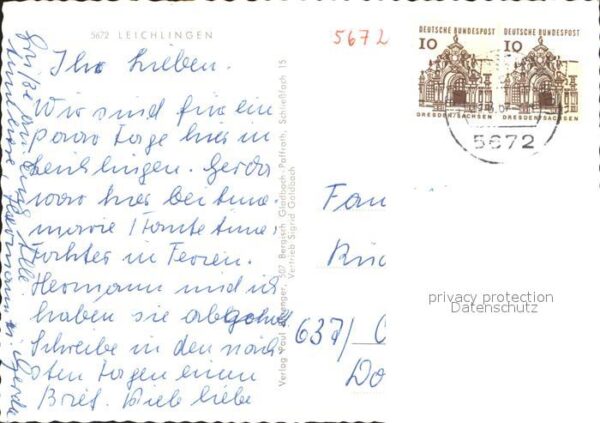 5672 LEICHLINGEN
5672
DEUTSCHE BUNDESPOST
10
DRESDEN/SACHSEN
DEUTSCHE BUNDESPOST
10
DRESDEN/SACHSEN
5672
Ihr Lieben.
Wir sind für ein
paar Tage hier in
Leichlingen. Gerda
war hier bei
marie
Tochter in Ferien.
Hermann und ich
haben sie abgeholt
Schreibe in den näch
sten Tagen einen
Brief. Viele liebe
Grüße an Euch Alle
Hermann u. Gerda
Verlag Paul 507 Bergisch Gladbach-Paffrath, Schließfach 15
Vertrieb Sigrid Goldbach
Fam
637/
privacy protection
Datenschutz